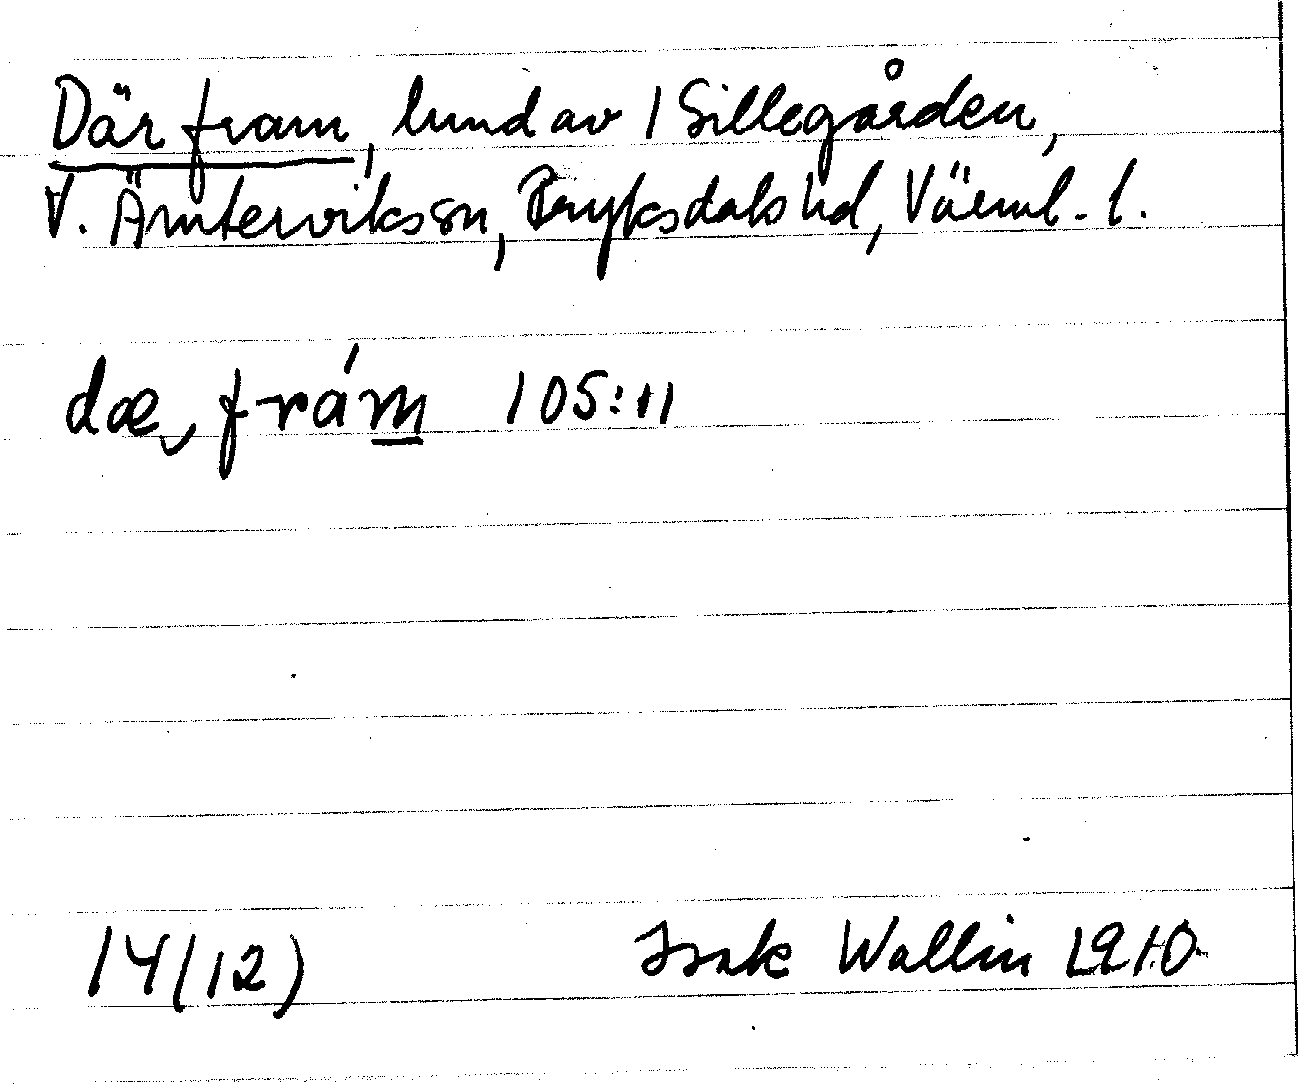 Där fram, lund av 1 Sillegården,
V. Ämterviks sn, Fryksdals hd, Värml. l.
dæ frám 105:11
14(12) Isak Wallin 1910